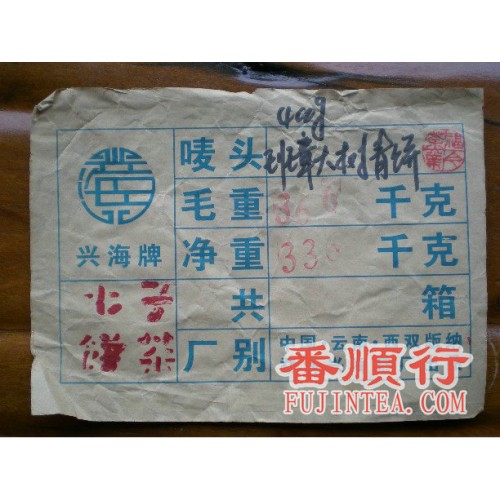 400g
唛头 班章大树青饼
毛重 36.0 千克
兴海牌
净重 33.0 千克
共 箱
饼茶
厂别 中国·云南·西双版纳
番順行
FUJINTEA.COM